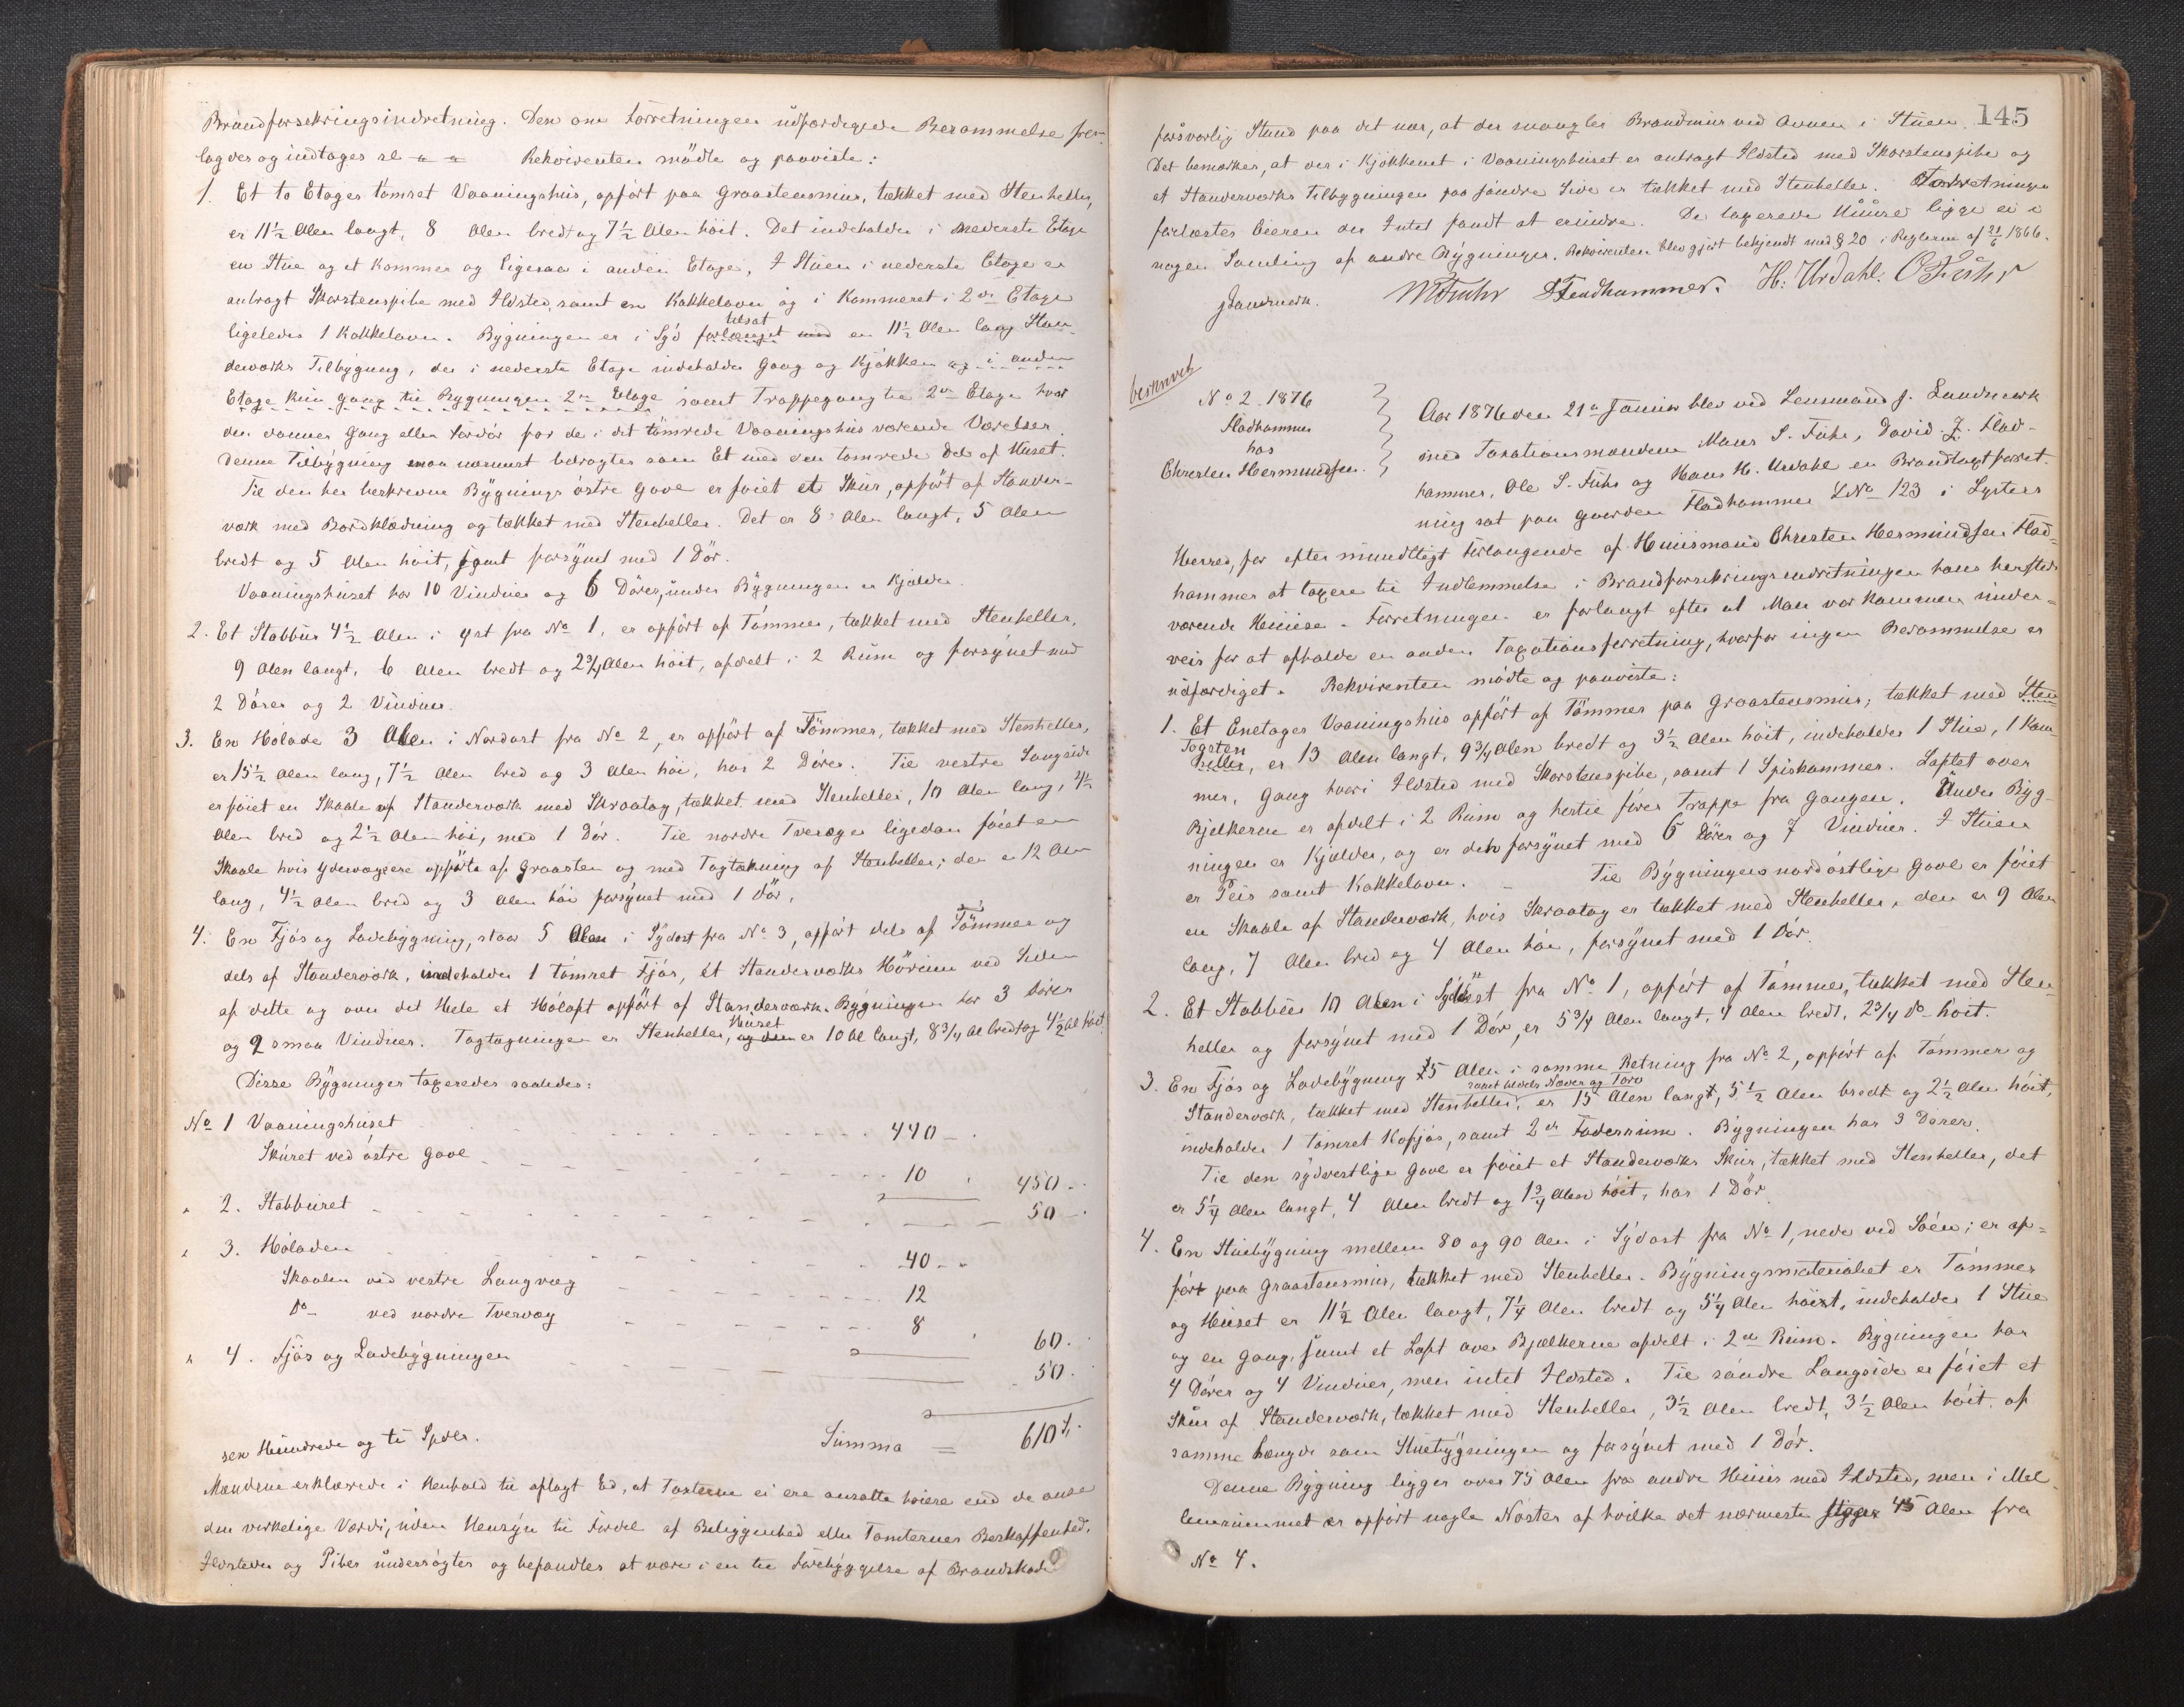 Brandforsekringsindretning. Den om Forretningen udfærdigede Berammelse frem-
lagdes og indtages sl „ „ Rekvirenten mödte og paaviste:
1. Et to Etages tömret Vaaningshus, opfört paa Graastensmur, tækket med Stenheller,
er 11 1/2 Alen langt, 8 Alen bredt og 7 1/2 Alen höit. Det indeholder i nederste Etage
en Stue og et Kammer og ligesaa i anden Etage, I Stuen i nederste Etage er
anbragt Skorstenspibe med Ildsted, samt en Kakkelovn og i Kammeret i 2den Etage
ligeledes 1 Kakkelovn. Bygningen er i Syd forlænget med tilsat en 11 1/2 Alen lang Stan-
derværks Tilbygning, der i nederste Etage indeholder Gang og Kjökken og i anden
Etage kun Gang til Bygningen 2den Etage samt Trappegang til 2den Etage hvor
den danner Gang eller Fordör for de i det tömrede Vaaningshus værende Værelser.
Denne Tilbygning maa nærmest betragtes som Et med den tömrede Del af Huset.
Til den her beskrevne Bygnings östre Gavl er föiet et Skur, opfört af Stander-
værk med Bordklædning og tækket med Stenheller. Det er 8 Alen langt, 5 Alen
bredt og 5 Alen höit, samt forsynet med 1 Dör.
Vaaningshuset har 10 Vinduer og 6 Dörer, under Bygningen er Kjælder.
2. Et Stabbur 4 1/2 Alen i Öst fra No 1, er opfört af Tömmer, tækket med Stenheller,
9 Alen langt, 6 Alen bredt og 2 3/4 Alen höit, afdelt i 2 Rum og forsynet med
2 Dörer og 2 Vinduer.
3. En Hölade 3 Alen i Nordost fra No 2, er opfört af Tömmer, tækket med Stenheller,
er 15 1/2 Alen lang, 7 1/2 Alen bred og 3 Alen höi, har 2 Dörer. Til vestre Langside
er föiet en Skaale af Standerværk med Skraatag, tækket med Stenheller, 10 Alen lang, 4 1/2
Alen bred og 2 1/2 Alen höi, med 1 Dör. Til nordre Tvervæg er ligedan föiet en
Skaale hvis Ydervægge ere opförte af Graasten og med Tagtækning af Stenheller; den er 12 Alen
lang, 4 1/2 Alen bred og 3 Alen höi forsynet med 1 Dör.
4. En Fjös og Ladebygning, staar 5 Alen i Sydost fra No 3, opfört dels af Tömmer og
dels af Standerværk, indeholder 1 tömret Fjös, et Standerværks Hörum ved Siden
af dette og over det Hele et Höloft opfört af Standerværk. Bygningen har 3 Dörer
og 2 smaa Vinduer. Tagtagningen er Stenheller, og den Huset er 10 Al langt, 8 3/4 Al bredt og 4 1/2 Al höit.
Disse Bygninger taxeredes saaledes:
No 1 Vaaningshuset 440 -
Skuret ved östre Gavl 10 . 450 -
„ 2. Stabburet 50 -
„ 3. Höladen 40 -
Skaalen ved vestre Langvæg 12
Do ved nordre Tvervæg 8 . 60.
„ 4. Fjös og Ladebygningen 50.
sex Hundrede og ti Spdlr. Summa = 610
Mændene erklærede i Henhold til aflagt Ed, at Taxterne ei ere ansatte höiere end de anse
den virkelige Værdi, uden Hensyn til Fordel af Beliggenhed eller Tomternes Beskaffenhed.
Ildsteder og Piber undersögtes og befandtes at være i en til Forebyggelse af Brandskade
145
forsvarlig Stand paa det nær, at der mangler Brandmur ved Ovnen i Stuen.
Det bemærkes, at der i Kjökkenet i Vaaningshuset er anbragt Ildsted med Skorstenspibe og
at Standerværks Tilbygningen paa söndre Side er tækket med Stenheller. Forretningen
forlæstes Eieren der Intet fandt at erindre. De taxerede Huse ligge ei i
nogen Samling af andre Bygninger. Rekvirenten blev gjort bekjendt med § 20 i Reglerne af 21/6 1866.
J Landmerk. M Fuhr D Fladhammer. H: Urdahl. O S Fuhr
beskrevet
No 2 1876
Fladhammer
hos
Christen Hermundsen.
Aar 1876 den 21de Januar blev ved Lensmand J. Landmerk
med Taxationsmændene Mons S. Fuhr, David J. Flad-
hammer, Ole S. Fuhr og Hans H. Urdahl en Brandtaxtforret-
ning sat paa Gaarden Fladhammer LNo 123 i Lysters
Herred, for efter mundtligt Forlangende af Huusmand Christen Hermundsen Flad-
hammer at taxere til Indlemmelse i Brandforsikringsindretningen hans hersteds
værende Huuse. Forretningen er forlangt efter at Man var kommen under-
veis for at afholde en anden Taxationsforretning, hvorfor ingen Berammelse er
udfærdiget. Rekvirenten mödte og paaviste:
1. Et Enetages Vaaningshus opfört af Tömmer paa Graastensmur, tækket med Sten-
heller Tagsten, er 13 Alen langt, 9 3/4 Alen bredt og 3 1/2 Alen höit, indeholder 1 Stue, 1 Kam-
mer, Gang hvori Ildsted med Skorstenspibe, samt 1 Spiskammer. Loftet over
Bjelkerne er afdelt i 2 Rum og hertil förer Trappe fra Gangen. Under Byg-
ningen er Kjælder, og er den forsynet med 6 Dörer og 7 Vinduer. I Stuen
er Peis samt Kakkelovn. - Til Bygningens nordöstlige Gavl er föiet
en Skaale af Standerværk, hvis Skraatag er tækket med Stenheller, den er 9 Alen
lang, 7 Alen bred og 4 Alen höi, forsynet med 1 Dör.
2. Et Stabbur 10 Alen i Sydöst fra No 1, opfört af Tömmer, tækket med Sten-
heller og forsynet med 1 Dör, er 5 3/4 Alen langt, 4 Alen bredt, 2 3/4 Do höit.
3. En Fjös og Ladebygning 15 Alen i samme Retning fra No 2, opfört af Tömmer og
Standerværk, tækket med Stenheller, samt tildels Næver og Torv er 15 Alen langt, 5 1/2 Alen bredt og 2 1/2 Alen höit,
indeholder 1 tömret Kofjös, samt 2de Foderrum. Bygningen har 3 Dörer.
Til den sydvestlige Gavl er föiet et Standerværks Skur, tækket med Stenheller, det
er 5 1/4 Alen langt, 4 Alen bredt og 1 3/4 Alen höit, har 1 Dör.
4. En Stuebygning mellem 80 og 90 Alen i Sydost fra No 1, nede ved Söen; er op-
fört paa Graastensmur, tækket med Stenheller. Bygningsmaterialet er Tömmer
og Huset er 11 1/2 Alen langt, 7 1/4 Alen bredt og 5 1/4 Alen höit, indeholder 1 Stue
og en Gang, samt et Loft over Bjælkerne afdelt i 2de Rum. Bygningen har
4 Dörer og 4 Vinduer, men intet Ildsted. Til söndre Langside er föiet et
Skur af Standerværk, tækket med Stenheller, 3 1/2 Alen bredt, 3 1/2 Alen höit, af
samme Længde som Stuebygningen og forsynet med 1 Dör.
Denne Bygning ligger over 75 Alen fra andre Huus med Ildsted, men i Mel-
lemrummet er opfört nogle Nöster af hvilke det nærmeste ligger 45 Alen fra
No 4.